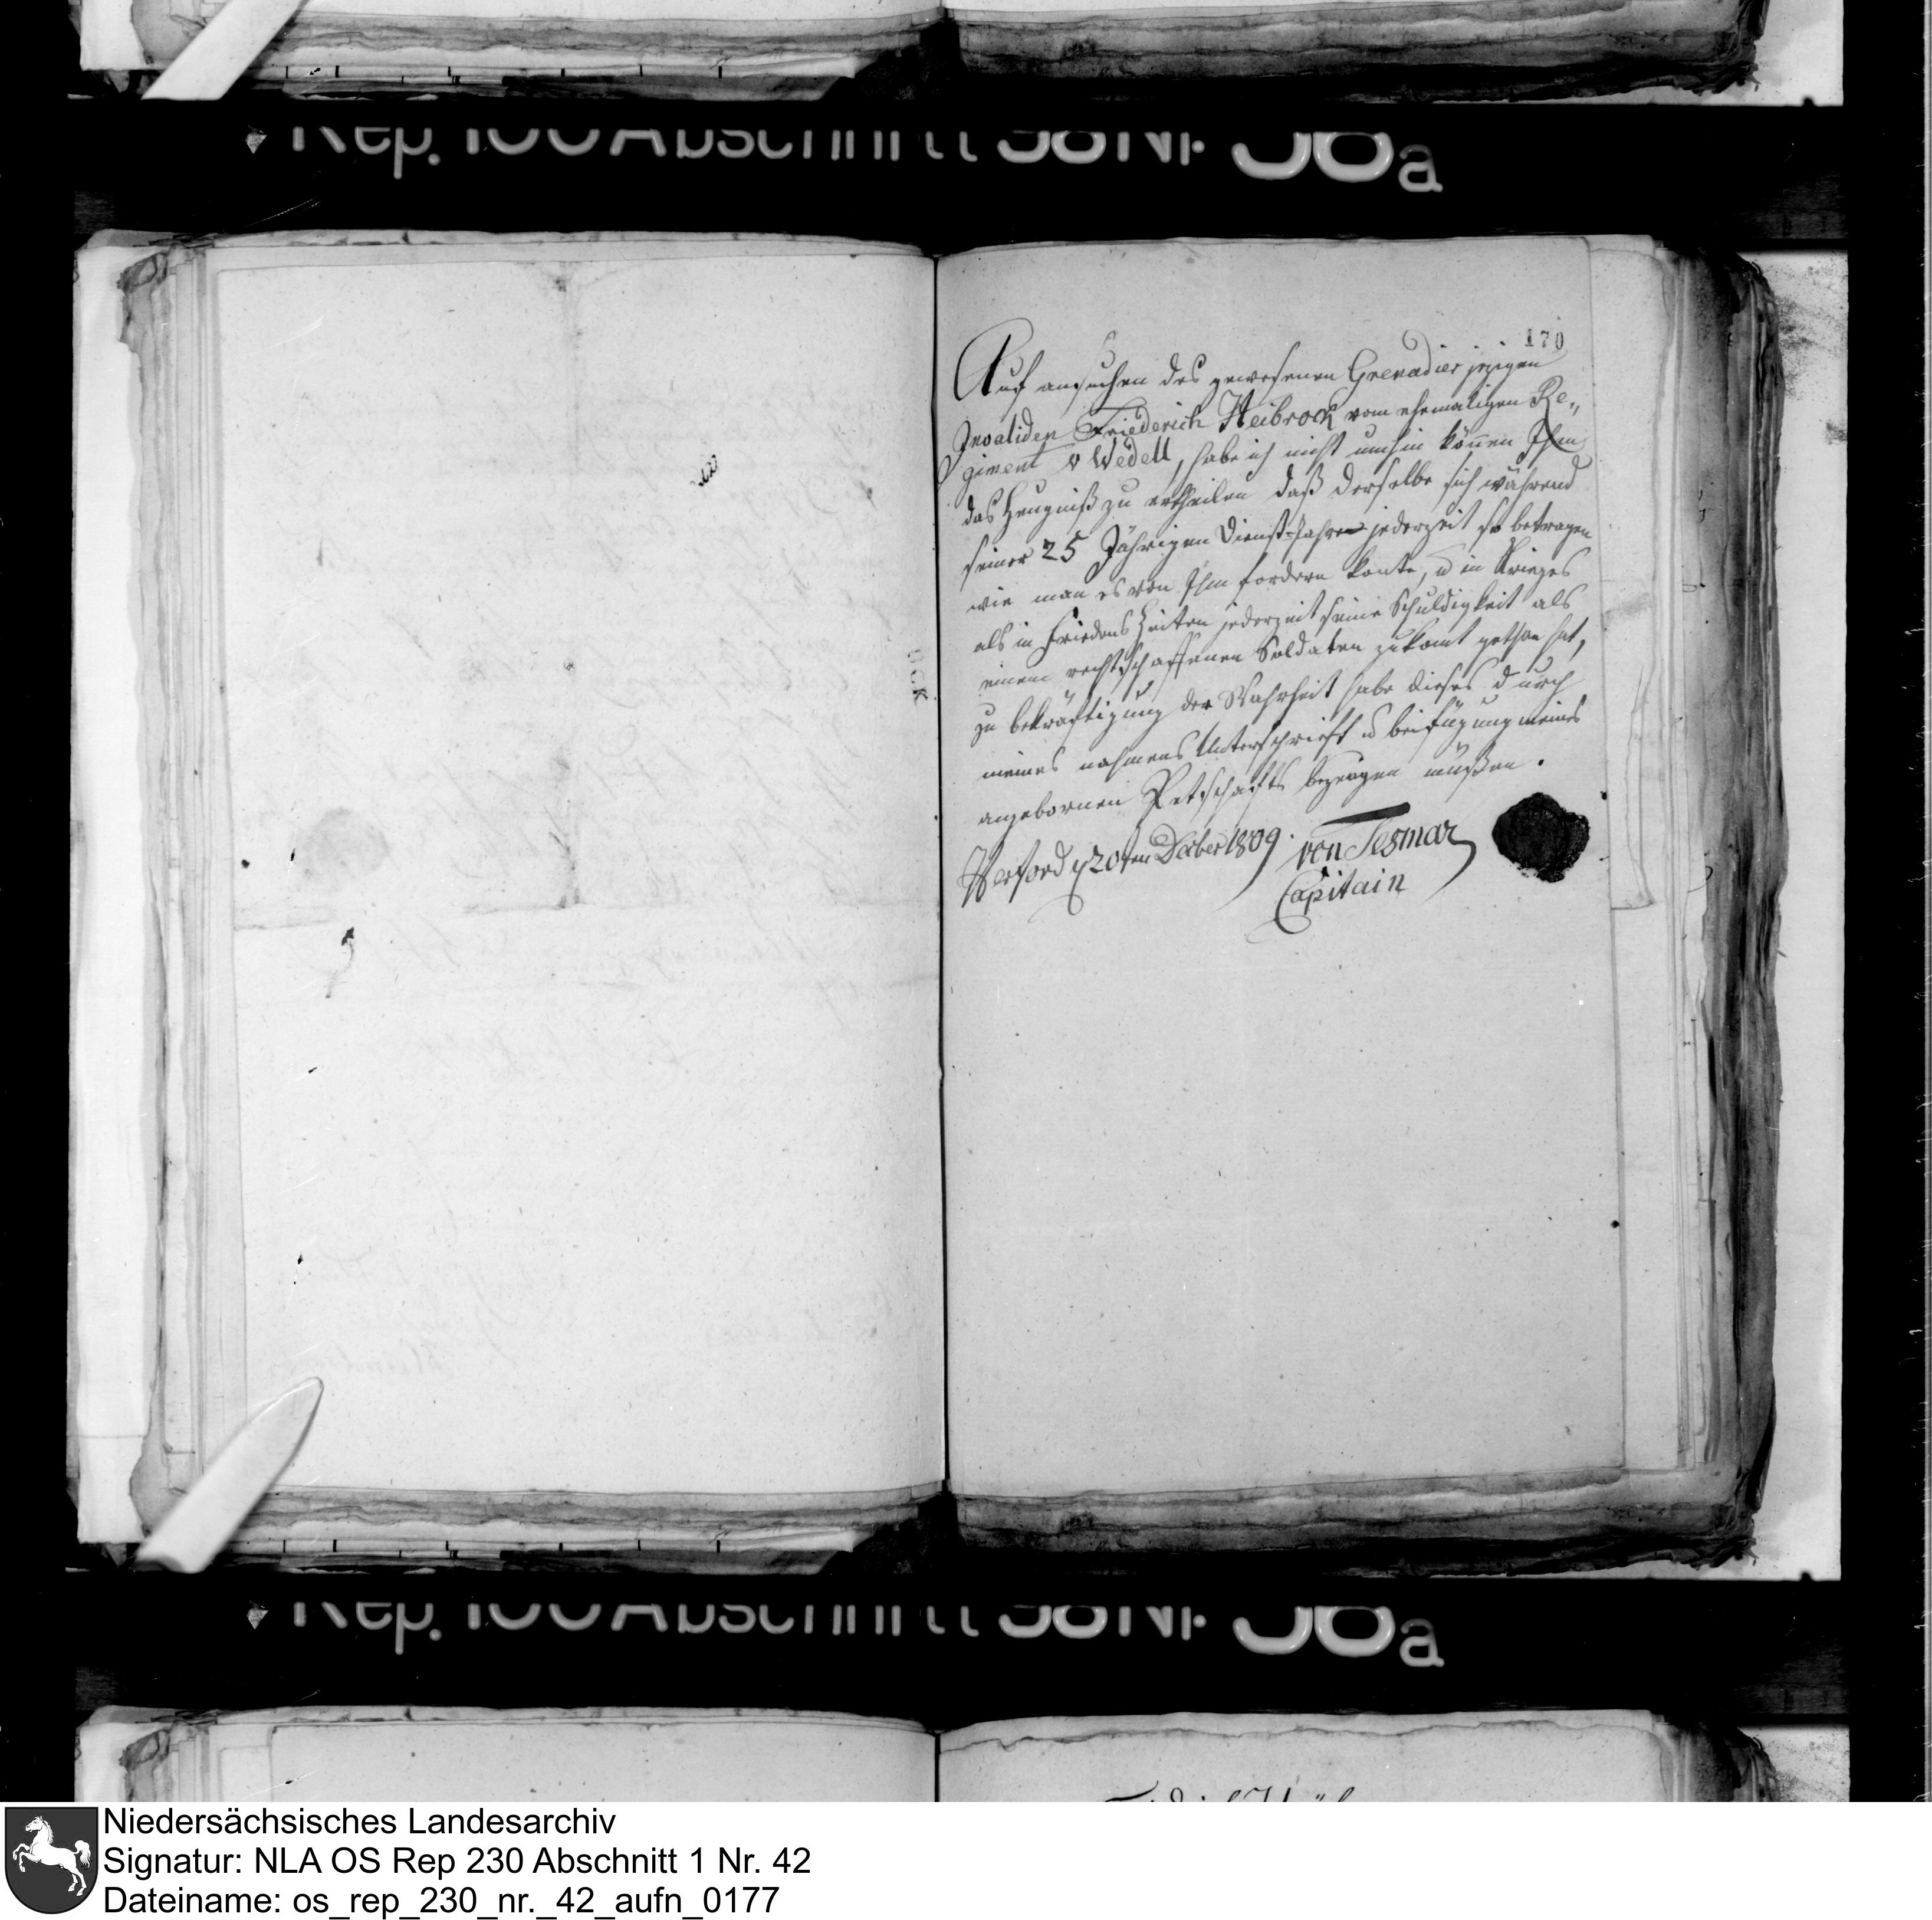 Rep. 100 Abschnitt 58 Nr. 38a
170
Auf ansuchen des gewesenen Grenadier jezigen
Invaliden Friederich Heibrock vom ehemaligen Re„
giment v Wedell, habe ich nicht umhin können Ihm
das Zeugniß zu ertheilen daß derselbe sich während
seiner 25 Jährigen Dienst-Jahre jederzeit so betragen
wie man es von Ihm fordern konte, u in Krieges
als in Friedens Zeiten jederzeit seine Schuldigkeit als
einem rechtschaffenen Soldaten zukomt gethan hat,
zu bekräftigung der Wahrheit habe dieses durch
meines nahmens Unterschrieft u beifügung meines
angebornen Petschafts bezeugen müßen.
Herford d 20ten Decber 1809. von Tesmar
Capitain
Rep. 100 Abschnitt 58 Nr. 38a
Niedersächsisches Landesarchiv
Signatur: NLA OS Rep 230 Abschnitt 1 Nr. 42
Dateiname: os_rep_230_nr._42_aufn_0177